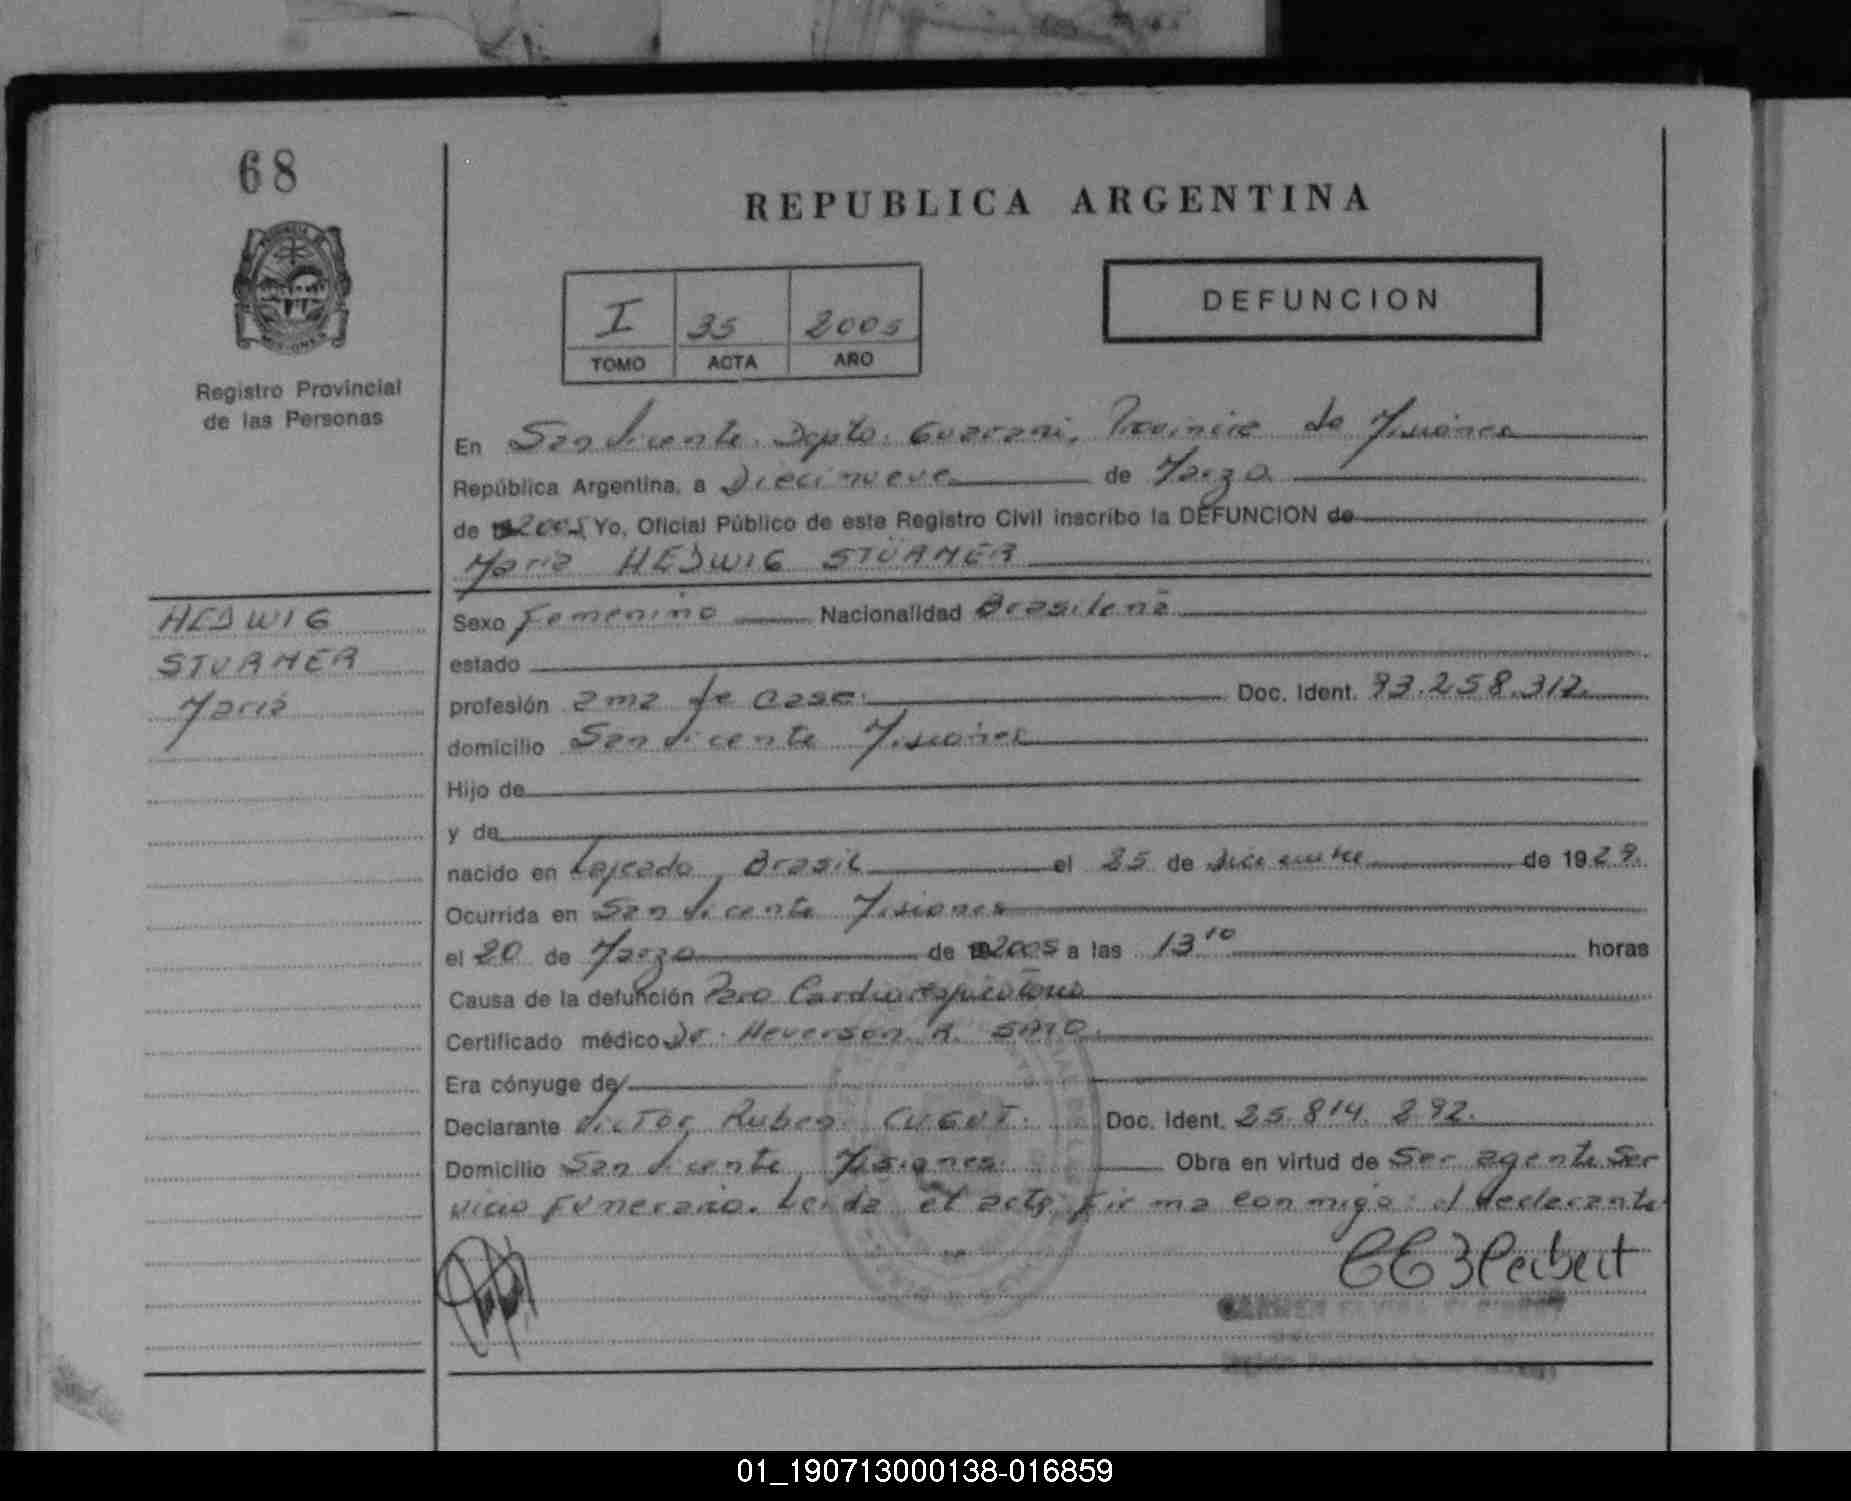 68
REPUBLICA ARGENTINA
I 35 2005
TOMO ACTA AÑO
DEFUNCION
Registro Provincial
de las Personas
En San Vicente. Depto. Guarani. Provincia de Misiones
República Argentina, a Diecinueve de Marzo
de 2005 Yo, Oficial Público de este Registro Civil inscribo la DEFUNCION de
Maria HEDWIG STÜRMER
HEDWIG
STURMER
Maria
Sexo Femenino Nacionalidad Brasileña
estado
profesión ama de casa. Doc. Ident. 93.258.312.
domicilio San Vicente Misiones
Hijo de
y de
nacido en Lajeado, Brasil el 25 de Diciembre de 1929.
Ocurrida en San Vicente Misiones
el 20 de Marzo de 2005 a las 13 10 horas
Causa de la defunción Paro Cardiorespiratorio
Certificado médico Dr. Heverson R. SATO.
Era cónyuge de
Declarante Victor Ruben. Doc. Ident. 25.814.292.
Domicilio San Vicente, Misiones. Obra en virtud de Ser agente Ser
vicio funerario. Leida el acta, firma conmigo el declarante
CARMEN
01_190713000138-016859